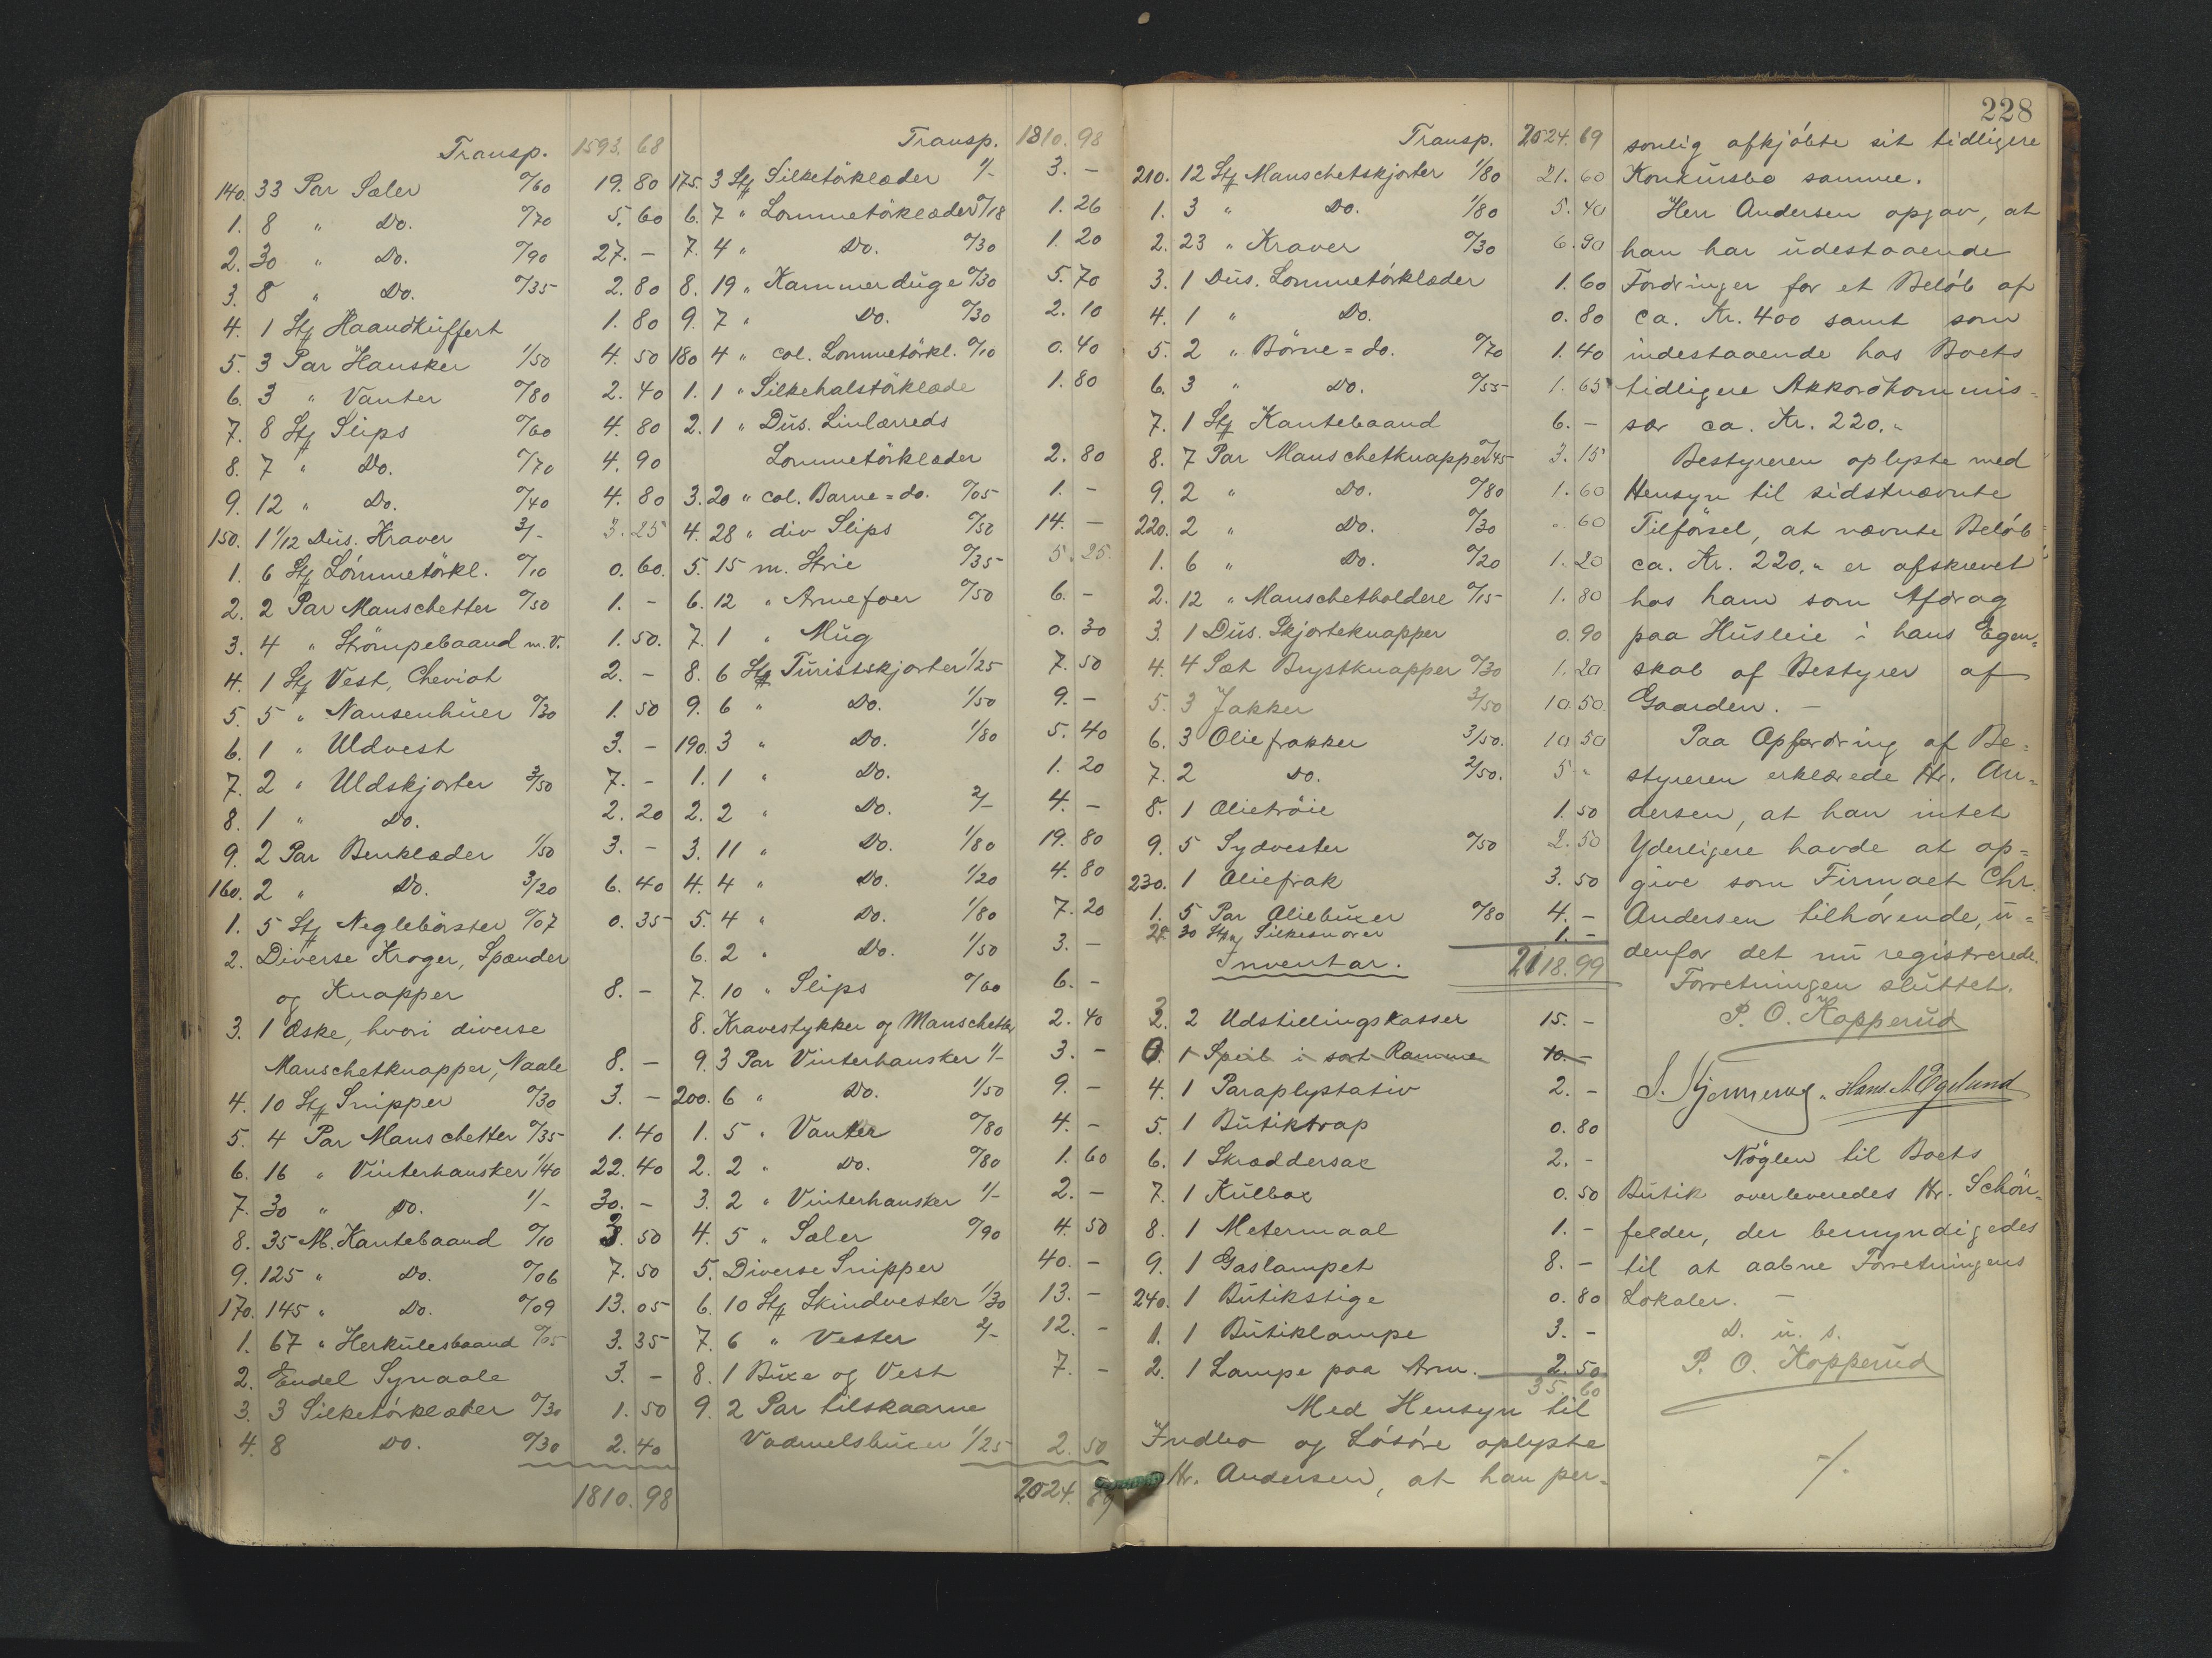 Transp. 1593. 68
140. 33 Par Sæler 0/60 19. 80
1. 8 " Do. 0/70 5. 60
2. 30 " Do. 0/90 27. -
3. 8 " Do. 0/35 2. 80
4. 1 Stk Haandkuffert 1. 80
5. 3 Par Hansker 1/50 4. 50
6. 3 " Vanter 0/80 2. 40
7. 8 Stk Slips 0/60 4. 80
8. 7 " Do. 0/70 4. 90
9. 12 " Do. 0/40 4. 80
150. 1 1/12 Dùs. Kraver 3/- 3. 25
1. 6 Stk Lommetörkl. 0/10 0. 60.
2. 2 Par Manschetter 0/50 1. -
3. 4 " Strömpebaand m.V. 1. 50.
4. 1 Stk Vest, Cheviot 2. -
5. 5 " Nansenhuer 0/30 1. 50
6. 1 " Uldvest 3. -
7. 2 " Uldskjorter 3/50 7. -
8. 1 " Do. 2. 20
9. 2 Par Benklæder 1/50 3. -
160. 2 " Do. 3/20 6. 40
1. 5 Stk Neglebörster 0/07 0. 35
2. Diverse Kroger, Spænder
og Knapper 8. -
3. 1 Æske, hvori diverse
Manschetknapper, Naale 8. -
4. 10 Stk Snipper 0/30 3. -
5. 4 Par Manschetter 0/35 1. 40
6. 16 " Vinterhansker 1/40 22. 40
7. 30 " Do. 1/- 30. -
8. 35 M. Kantebaand 0/10 3. 50
9. 125 " Do. 0/06 7. 50
170. 145 " Do. 0/09 13. 05
1. 67 " Herkulesbaand 0/05 3. 35
2. Endel Synaale 3. -
3. 3 Silketörklæder 0/30 1. 50
4. 8 Do. 0/30 2. 40
1810. 98
Transp. 1810. 98
175. 3 Stk Silketörklæder 1/- 3. -
6. 7 " Lommetörklæder 0/18 1. 26
7. 4 " Do. 0/30 1. 20
8. 19 " Kammerduge 0/30 5. 70
9. 7 " Do. 0/30 2. 10
180 4 " col. Lommetörkl. 0/10 0. 40
1. 1 " Silkehalstöklæde 1. 80
2. 1 " Dus. Linlærreds
Lommetörklæder 2. 80
3. 20 " col. Barne=do. 0/05 1. -
4. 28 " div Slips 0/50 14. -
5. 15 m. Strie 0/35 5. 25.
6. 12 " Armefoer 0/50 6. -
7. 1 " Mug 0. 30
8. 6 Stk Turistskjorter 1/25 7. 50
9. 6 " Do. 1/50 9. -
190. 3 " Do. 1/80 5. 40
1. 1 " Do. 1. 20
2. 2 " Do. 2/- 4. -
3. 11 " Do. 1/80 19. 80
4. 4 " Do. 1/20 4. 80
5. 4 " Do. 1/80 7. 20
6. 2 " Do. 1/50 3. -
7. 10 " Slips 0/60 6. -
8. Kravestykker og Manschetter 2. 40
9. 3 Par Vinterhansker 1/- 3. -
200. 6 " Do. 1/50 9. -
1. 5 " Vanter 0/80 4. -
2. 2 " Do. 0/80 1. 60
3. 2 " Vinterhansker 1/- 2. -
4. 5 " Sæler 0/90 4. 50
5. Diverse Snipper 40. -
6. 10 Stk Skindvester 1/30 13. -
7. 6 " Vester 2/- 12. -
8. 1 Buxe og Vest 7. -
9. 2 Par tilskaarne
Vadmelsbuxer 1/25 2. 50
2024. 69
228
Transp. 2024. 69
210. 12 Stk Manschetskjorter 1/80 21. 60
1. 3 " Do. 1/80 5. 40
2. 23 " Kraver 0/30 6. 90
3. 1 Dus. Lommetörklæder 1. 60
4. 1 " Do. 0. 80
5. 2 " Börne=do. 0/70 1. 40
6. 3 " Do. 0/55 1. 65
7. 1 Stk Kantebaand 6. -
8. 7 Par Manschetknapper 0/45 3. 15
9. 2 " Do. 0/80 1. 60
220. 2 " Do. 0/30 ". 60
1. 6 " Do. 0/20 1. 20
2. 12 " Manschetholdere 0/15 1. 80
3. 1 Dus. Skjorteknapper 0. 90
4. 4 Sæt Brystknapper 0/30 1. 20
5. 3 Jakker 3/50 10. 50
6. 3 Oliefrakker 3/50. 10 50
7. 2 Do. 2/50. 5 "
8. 1 Olietröie 1. 50
9. 5 Sydvester 0/50 2. 50
230. 1 Oliefrak 3. 50
1. 5 Par Oliebuxer 0/80 4. -
30 Stk Silkesnorer 1. -
Inventar. 2118. 99
2. 2 Udstillingskasser 15. -
1 Speil i sort Ramme 10. -
4. 1 Paraplystativ 2. -
5. 1 Butiktrap 0. 80
6. 1 Skræddersax 2. -
7. 1 Kulbox 0. 50
8. 1 Metermaal 1. -
9. 1 Gaslampet 8. -
240. 1 Butikstige 0. 80
1. 1 Butiklampe 3. -
2. 1 Lampe paa Arm. 2. 50
35. 60
Med Hensyn til
Indbo og Lösöre oplyste
Hr. Andersen, at han per=
sonlig afkjöbte sit tidligere
Konkursbo samme.
Herr Andersen opgav, at
han har udestaaende
Fordringer for et Belöb af
ca. Kr. 400 samt som
indestaaende hos Boets
tidligere Akkordkommis=
sær ca. Kr. 220."
Bestyreren oplyste med
Hensyn til sidstnævnte
Tilförsel, at nævnte Belöb
ca. Kr. 220." er afskrevet
hos ham som Afdrag
paa Husleie i hans Egen=
skab af Bestyrer af
Gaarden. -
Paa Opfordring af Be=
styreren erklærede Hr. An=
dersen, at han intet
Yderligere havde at op=
give som Firmaet Chr.
Andersen tilhörende, u=
denfor det nu registrerede.
Forretningen sluttet.
P. O. Kopperud
Hans A. Egelund
Nöglen til Boets
Butik overleveredes Hr. Schön=
felder, der bemyndigedes
til at aabne Forretningens
Lokaler. -
D. u. s.
P. O. Kopperud